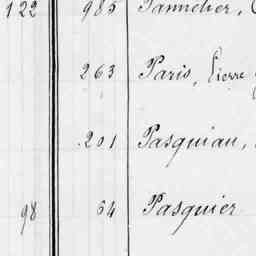 122 985 Pannetier,
263 Paris, Pierre
201 Pasquiau,
98 64 Pasquier